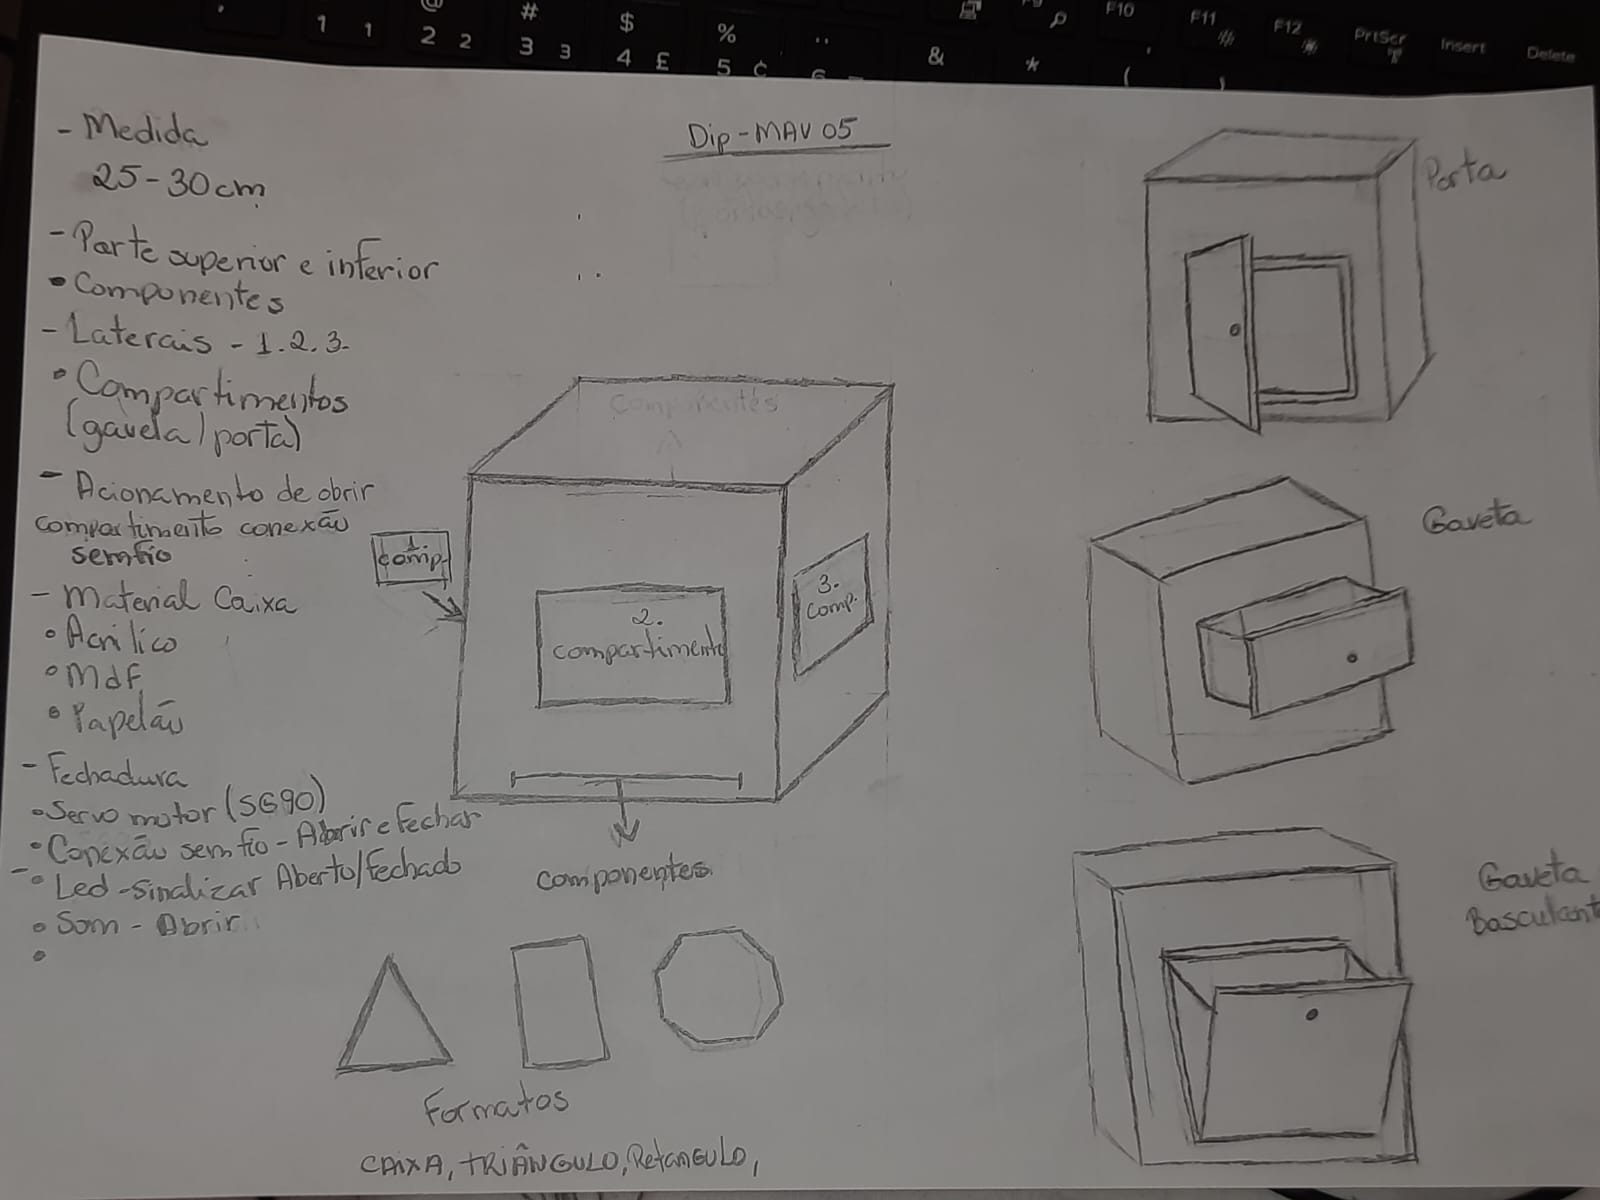 # $ % & *
1 1 2 2 3 3 4 £ 5 ¢ 6
F10 F11 F12 PrtScr Insert Delete
Dip-MAV 05
- Medida
25-30cm
- Parte superior e inferior
• Componentes
- Laterais - 1.2.3.
• Compartimentos
(gaveta/porta)
- Acionamento de abrir
compartimento conexão
sem fio
- Material Caixa
• Acrílico
• Mdf
• Papelão
- Fechadura
• Servo motor (SG90)
• Conexão sem fio - Abrir e Fechar
- • Led - sinalizar Aberto/Fechado
• Som - Abrir
•
Componentes
1
comp.
2.
compartimento
3.
comp.
componentes
Formatos
CAIXA, TRIÂNGULO, RetanGULO,
Porta
Gaveta
Gaveta
Basculant